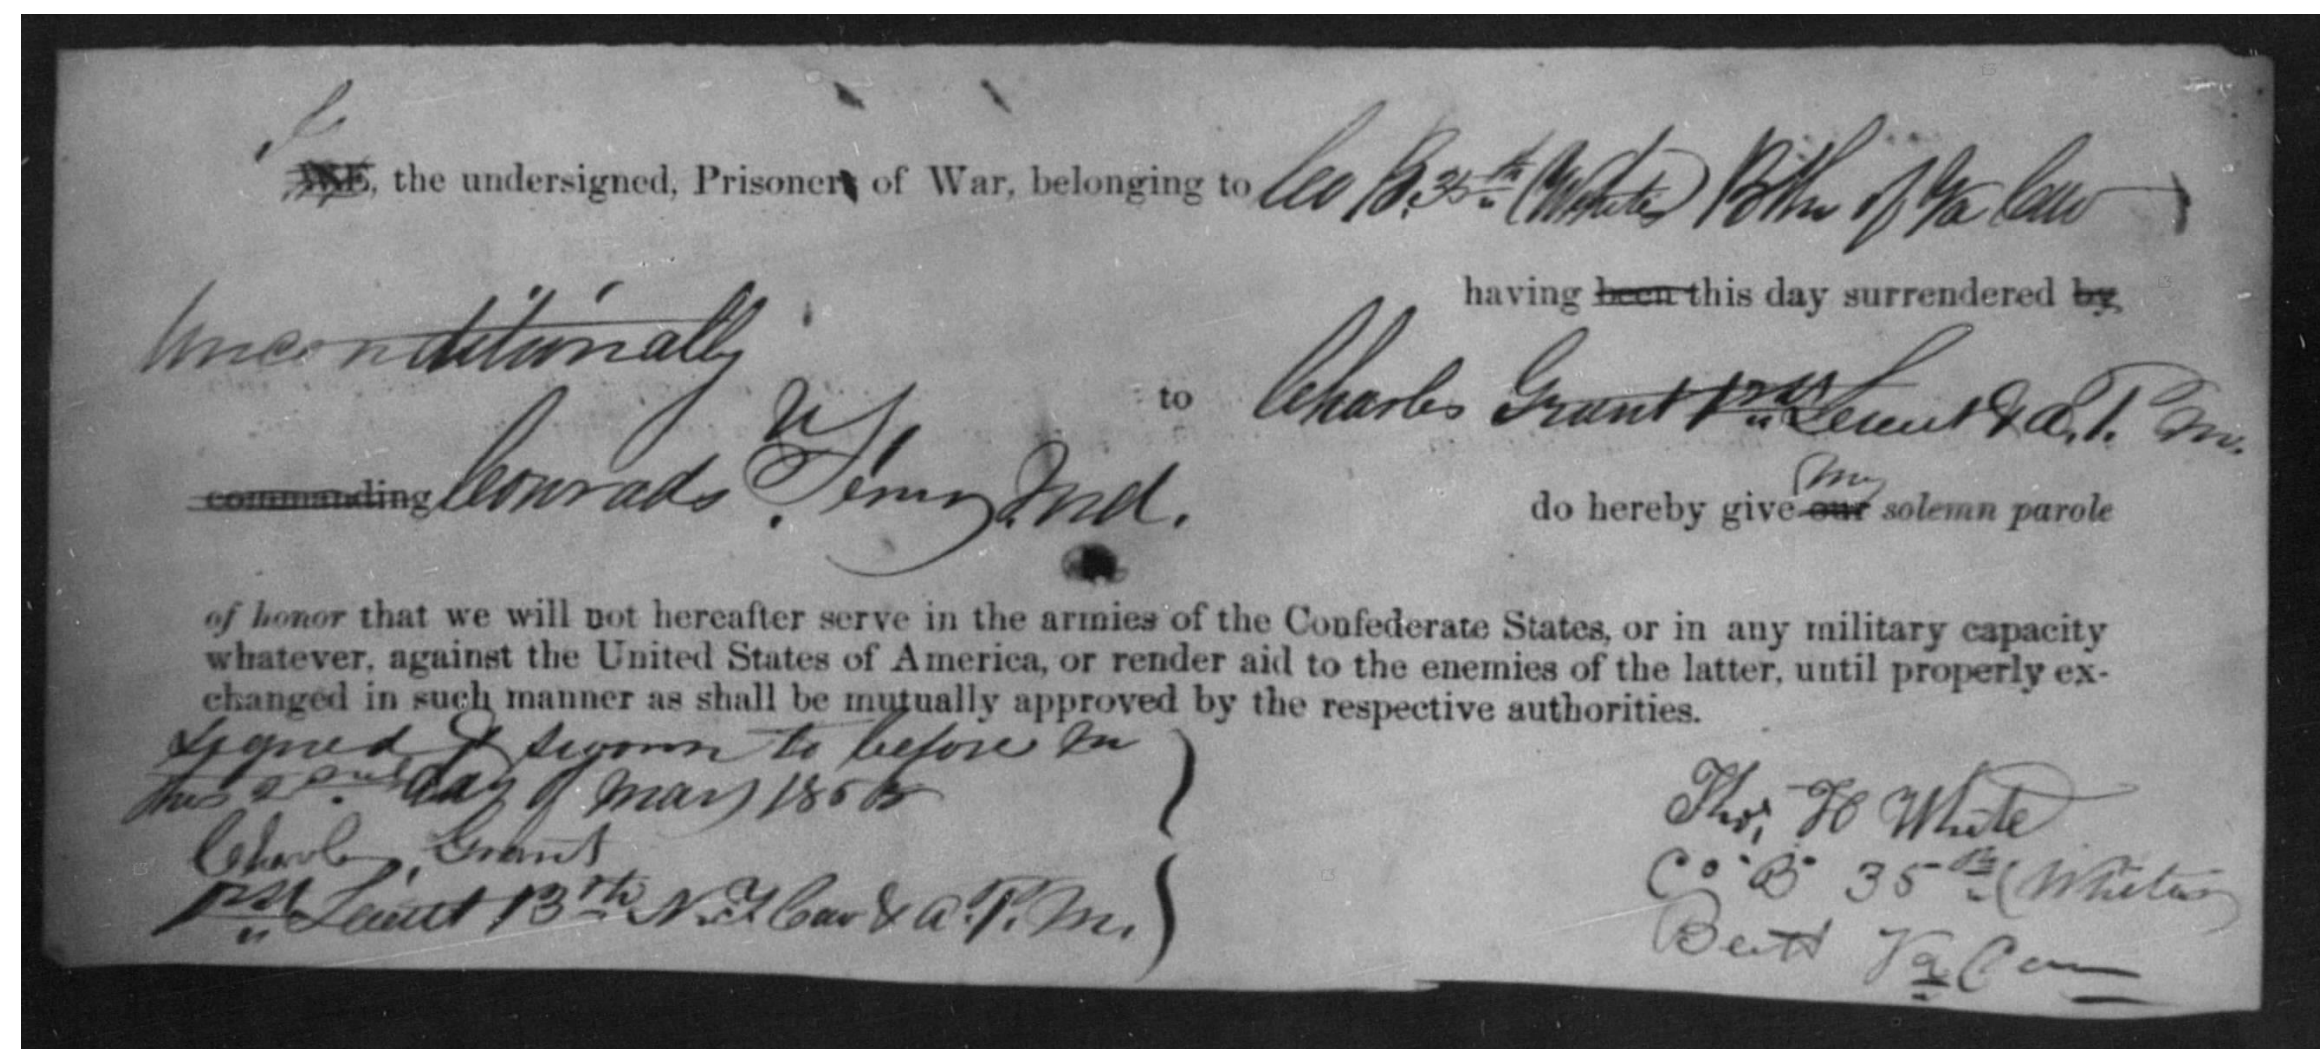 I
WE, the undersigned, Prisoners of War, belonging to Co B. 35th (Whites) Bttn of Va Cav
having been this day surrendered by
Unconditionally
to Charles Grant 1st Lieut & A. P. M.
commanding Conrads Ferry Md.
my
do hereby give our solemn parole
of honor that we will not hereafter serve in the armies of the Confederate States, or in any military capacity
whatever, against the United States of America, or render aid to the enemies of the latter, until properly ex-
changed in such manner as shall be mutually approved by the respective authorities.
Signed & sworn to before me
this 2nd day of May 1865
Charles Grant
1st Lieut 13th N.Y. Cav & A. P. M.
Thos, H White
Co B 35th (Whites)
Batt Va Cav